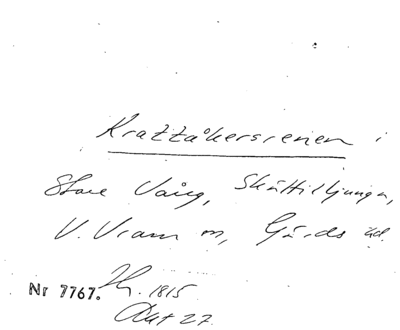 Krazzåkersrenen i
Store Vång, Skättilljunga,
V. Vram sn, Gärds hd.
Nr 7767. 1815
Akt 27.